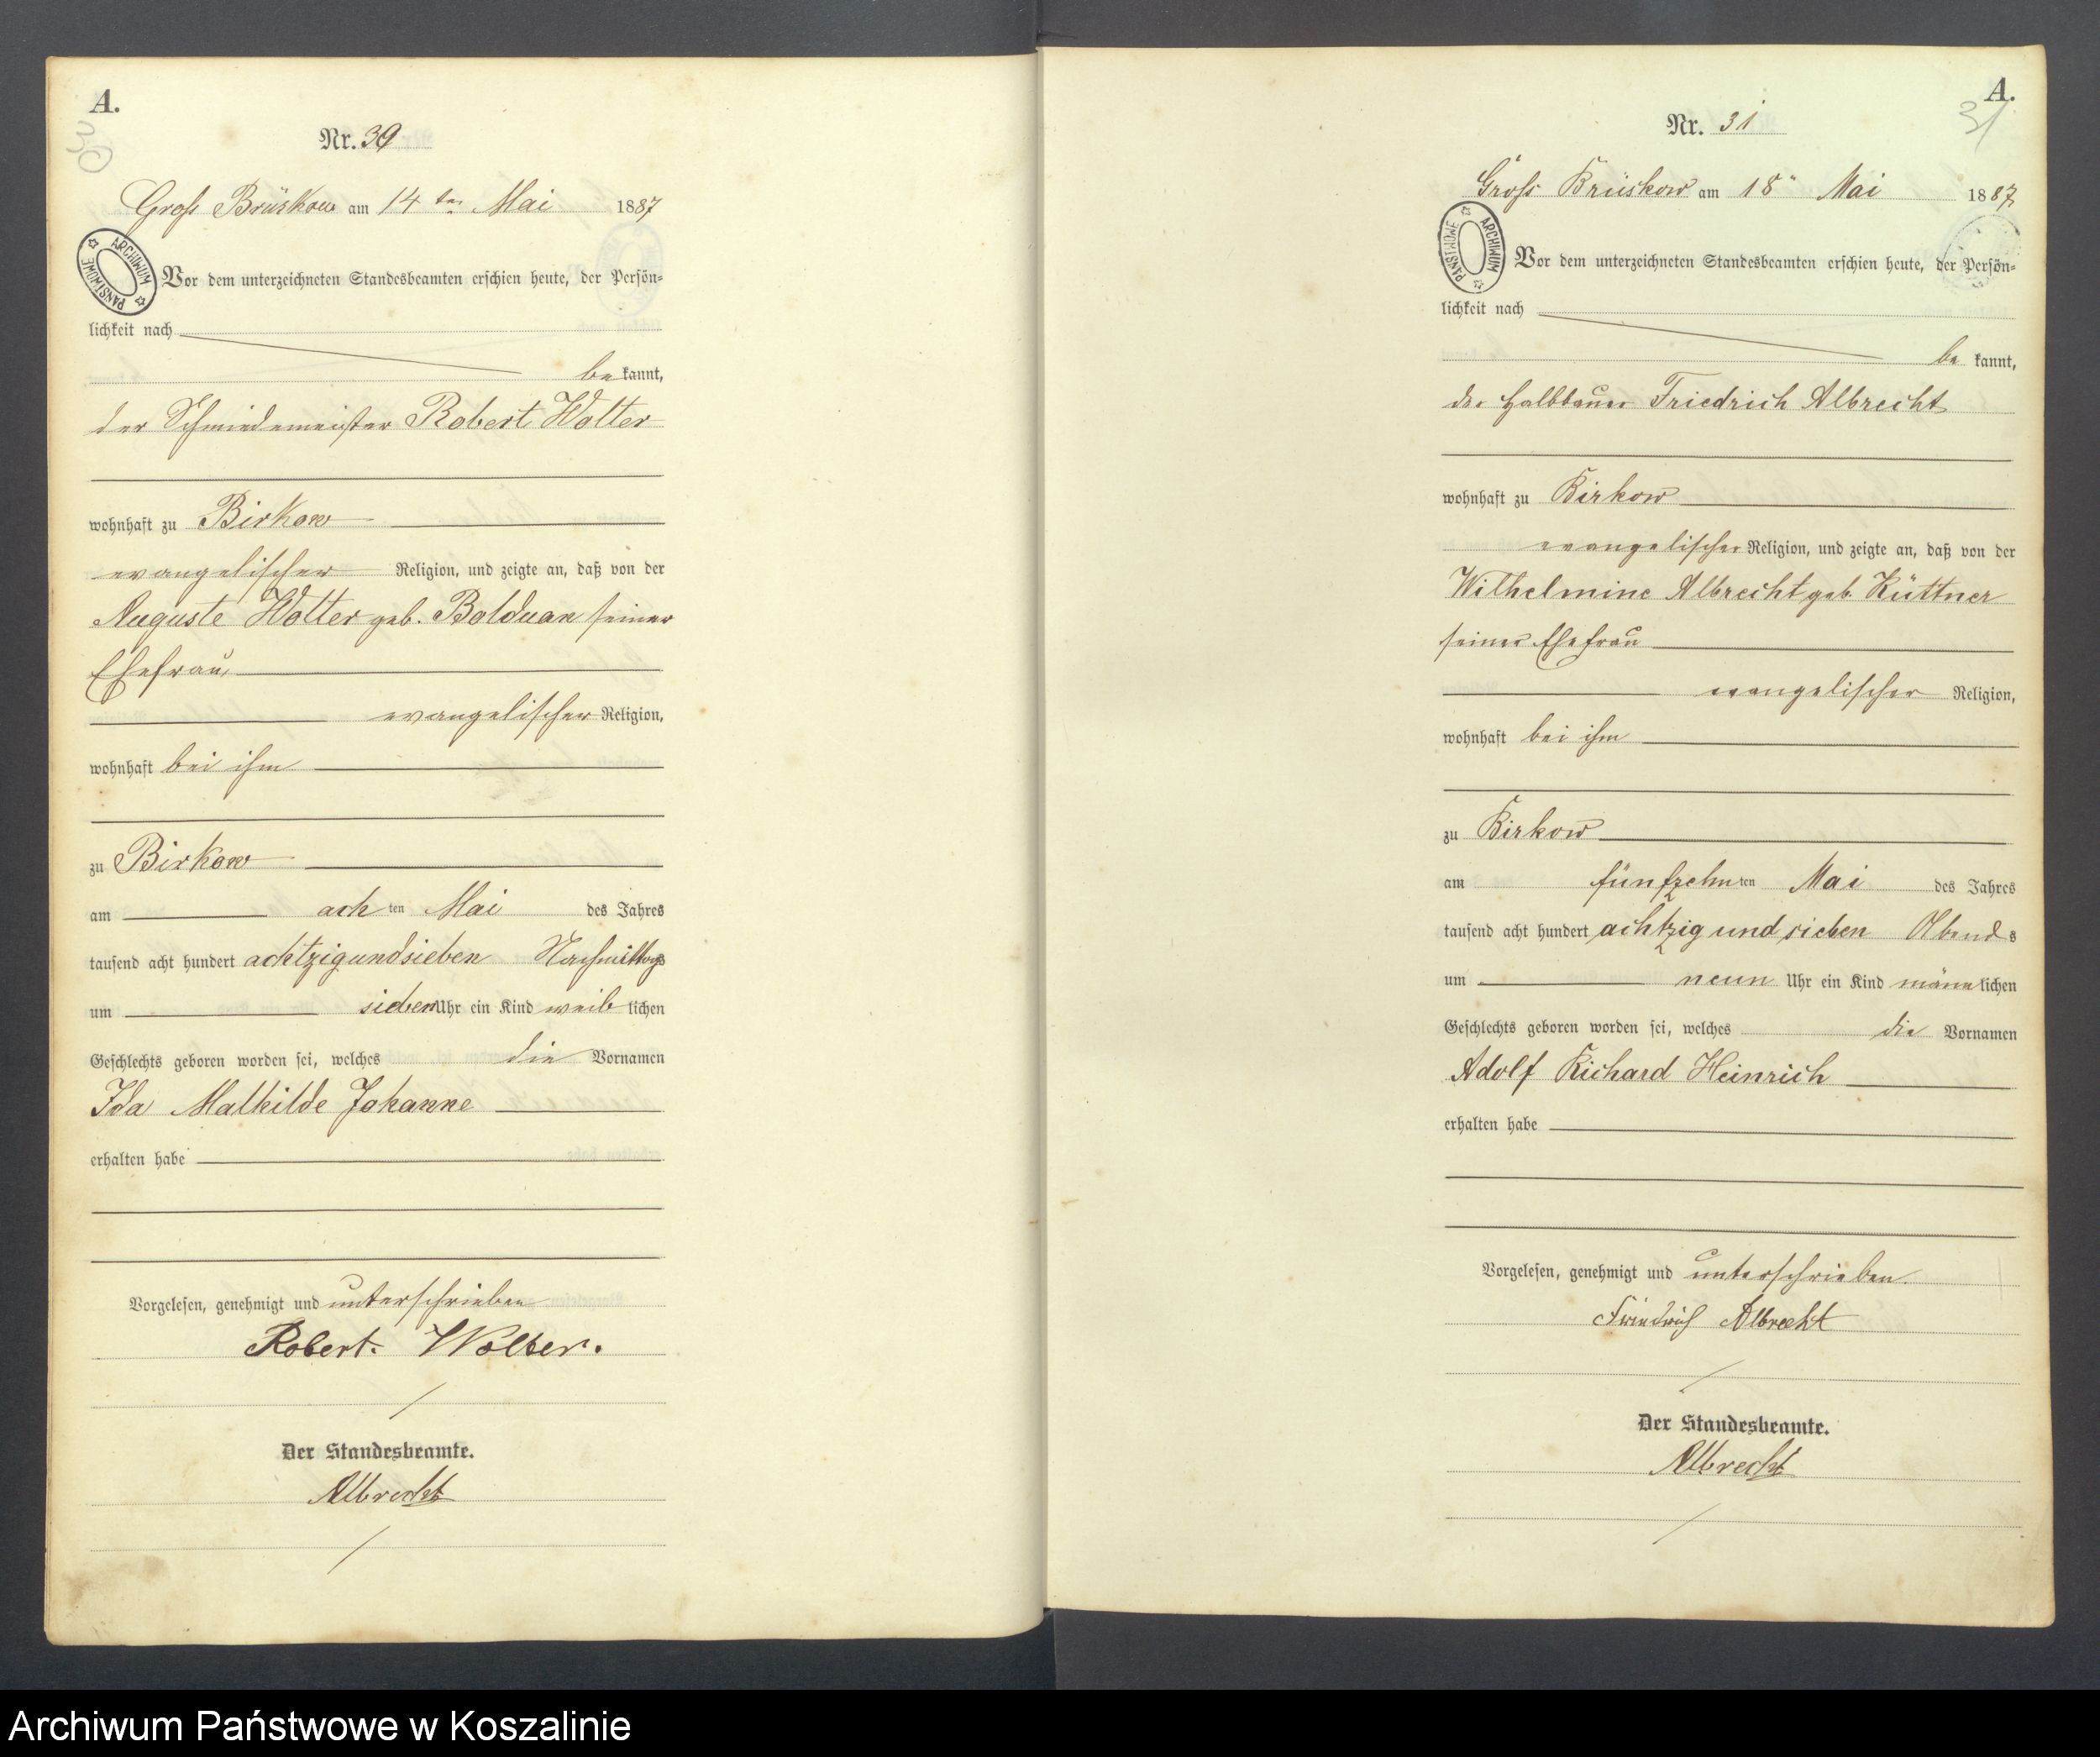 A.
30
Nr. 30
Groß Brüskow am 14 ten Mai 1887
ARCHIWUM PAŃSTWOWE
Vor dem unterzeichneten Standesbeamten erschien heute, der Persön-
lichkeit nach
be kannt,
der Schmiedemeister Robert Wolter
wohnhaft zu Birkow
evangelischer Religion, und zeigte an, daß von der
Auguste Wolter geb. Balduan seiner
Ehefrau
evangelischer Religion,
wohnhaft bei ihm
zu Birkow
am achten Mai des Jahres
tausend acht hundert achtzigundsieben Nachmittags
um sieben Uhr ein Kind weiblichen
Geschlechts geboren worden sei, welches die Vornamen
Ida Mathilde Johanne
erhalten habe
Vorgelesen, genehmigt und unterschrieben
Robert Wolter.
Der Standesbeamte.
Albrecht
A.
31
Nr. 31
Groß Brüskow am 18" Mai 1887
ARCHIWUM PAŃSTWOWE
Vor dem unterzeichneten Standesbeamten erschien heute, der Persön-
lichkeit nach
be kannt,
der Halbbauer Friedrich Albrecht
wohnhaft zu Birkow
evangelischer Religion, und zeigte an, daß von der
Wilhelmine Albrecht geb. Küttner
seiner Ehefrau
evangelischer Religion,
wohnhaft bei ihm
zu Birkow
am fünfzehnten Mai des Jahres
tausend acht hundert achtzig und sieben Abends
um neun Uhr ein Kind männlichen
Geschlechts geboren worden sei, welches die Vornamen
Adolf Richard Heinrich
erhalten habe
Vorgelesen, genehmigt und unterschrieben.
Friedrich Albrecht
Der Standesbeamte.
Albrecht
Archiwum Państwowe w Koszalinie